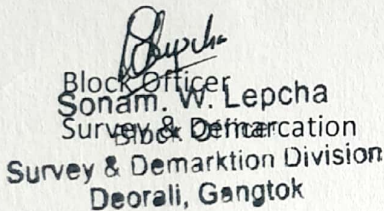 Lepcha
Block Officer
Sonam. W. Lepcha
Survey & Demarcation
Block Officer
Survey & Demarktion Division
Deorali, Gangtok